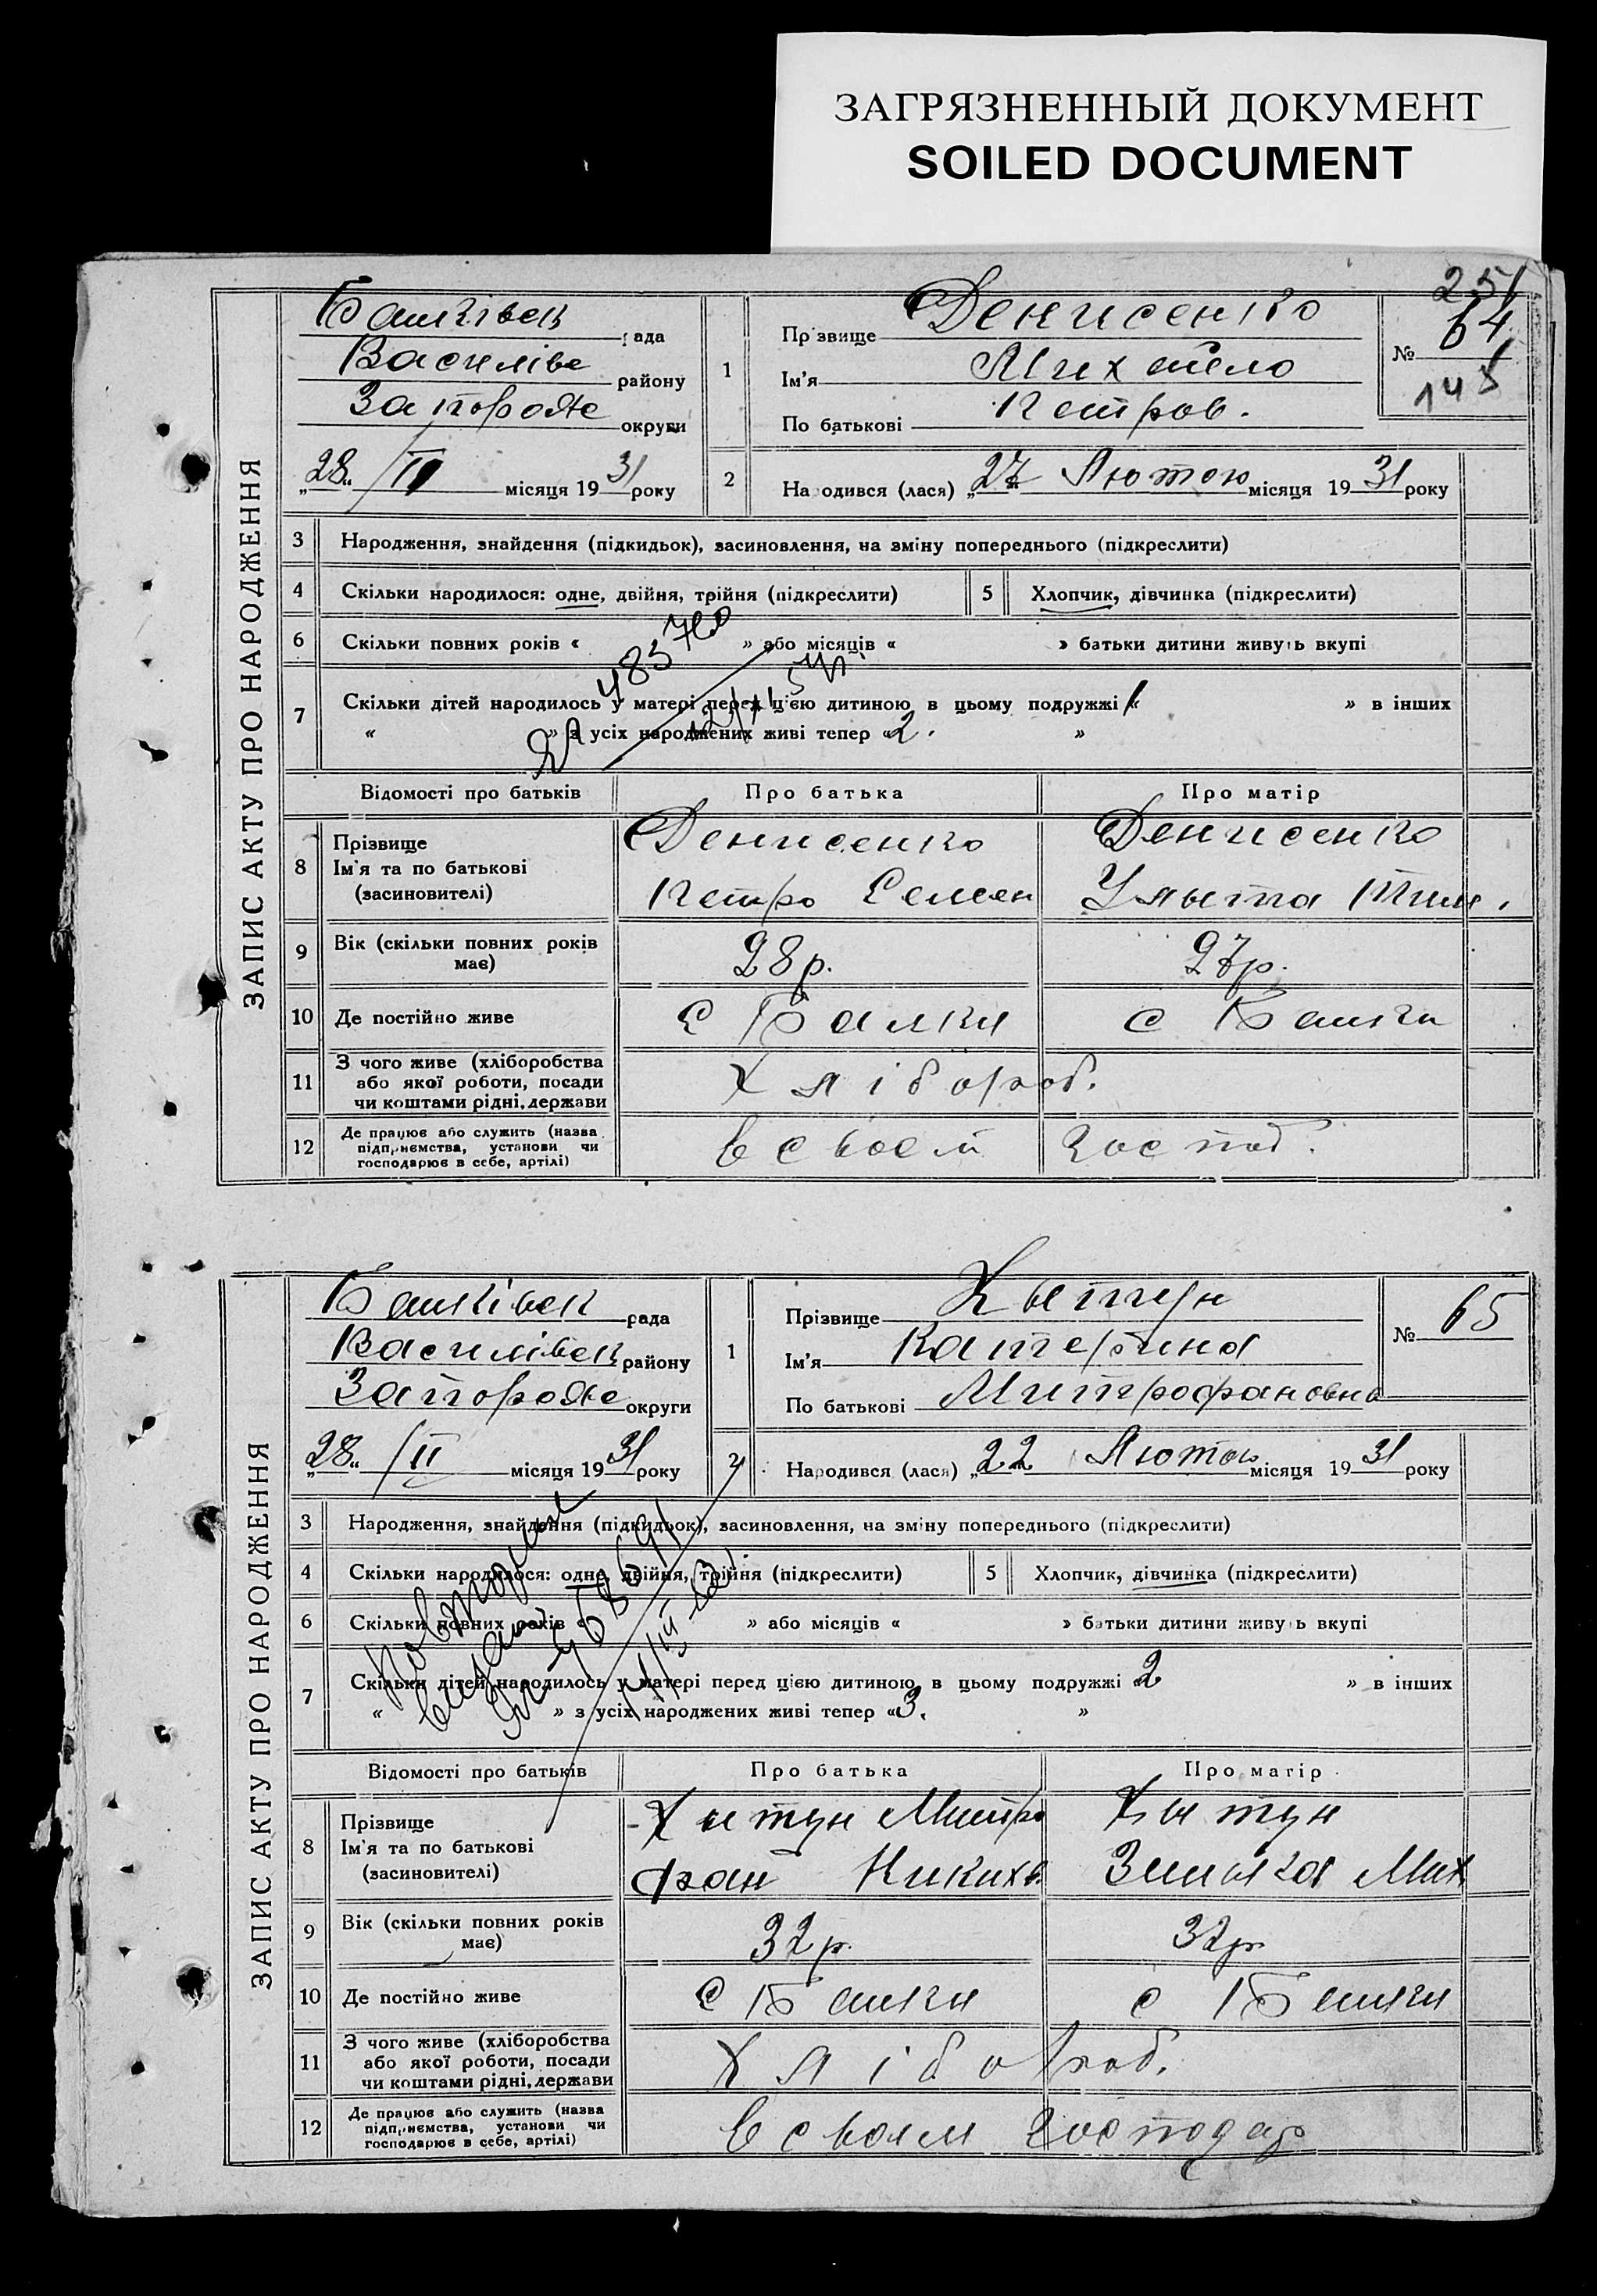 ЗАГРЯЗНЕННЫЙ ДОКУМЕНТ
SOILED DOCUMENT
251
ЗАПИС АКТУ ПРО НАРОДЖЕННЯ
Балківськ рада
Василівс району
Запорожс округи
„28“ /II місяця 1931 року
1
Прізвище Денисенко
Ім'я Михайло
По батькові Петров.
№ 64
145
2
Народився (лася) „27 Лютого місяця 1931 року
3 Народження, знайдення (підкидьок), засиновлення, на зміну попереднього (підкреслити)
4 Скільки народилося: одне, двійня, трійня (підкреслити) 5 Хлопчик, дівчинка (підкреслити)
6 Скільки повних років « » або місяців « » батьки дитини живуть вкупі
7 Скільки дітей народилось у матері перед цією дитиною в цьому подружжі « 1 » в інших
« » з усіх народжених живі тепер «2. »
Відомості про батьків Про батька Про матір
8 Прізвище Ім'я та по батькові (засновителі)
Денисенко Денисенко
Петро Семен Уляна Тим.
9 Вік (скільки повних років має) 28 р. 27 р.
10 Де постійно живе с Балки с Балки
11 З чого живе (хліборобства або якої роботи, посади чи коштами рідні, держави Хлібороб.
12 Де працює або служить (назва підприємства, установи чи господарює в себе, артілі) в своєм господ.
ЗАПИС АКТУ ПРО НАРОДЖЕННЯ
Балківськ рада
Василівськ району
Запорожс округи
„28“ /II місяця 1931 року
1
Прізвище Хытун
Ім'я Катерина
По батькові Митрофановна
№ 65
2
Народився (лася) „22 Лютого місяця 1931 року
3 Народження, знайдення (підкидьок), засиновлення, на зміну попереднього (підкреслити)
4 Скільки народилося: одне, двійня, трійня (підкреслити) 5 Хлопчик, дівчинка (підкреслити)
6 Скільки повних років « » або місяців « » батьки дитини живуть вкупі
7 Скільки дітей народилось у матері перед цією дитиною в цьому подружжі 2 » в інших
« » з усіх народжених живі тепер «3. »
Повторное
Відомості про батьків Про батька Про матір
8 Прізвище Ім'я та по батькові (засиновителі)
Хытун Митро Хытун
фан Зинька Мих
9 Вік (скільки повних років має) 32 р. 32 р
10 Де постійно живе с Балки с Балки
11 З чого живе (хліборобства або якої роботи, посади чи коштами рідні, держави Хлібороб.
12 Де працює або служить (назва підприємства, установи чи господарює в себе, артілі) в своєм господар